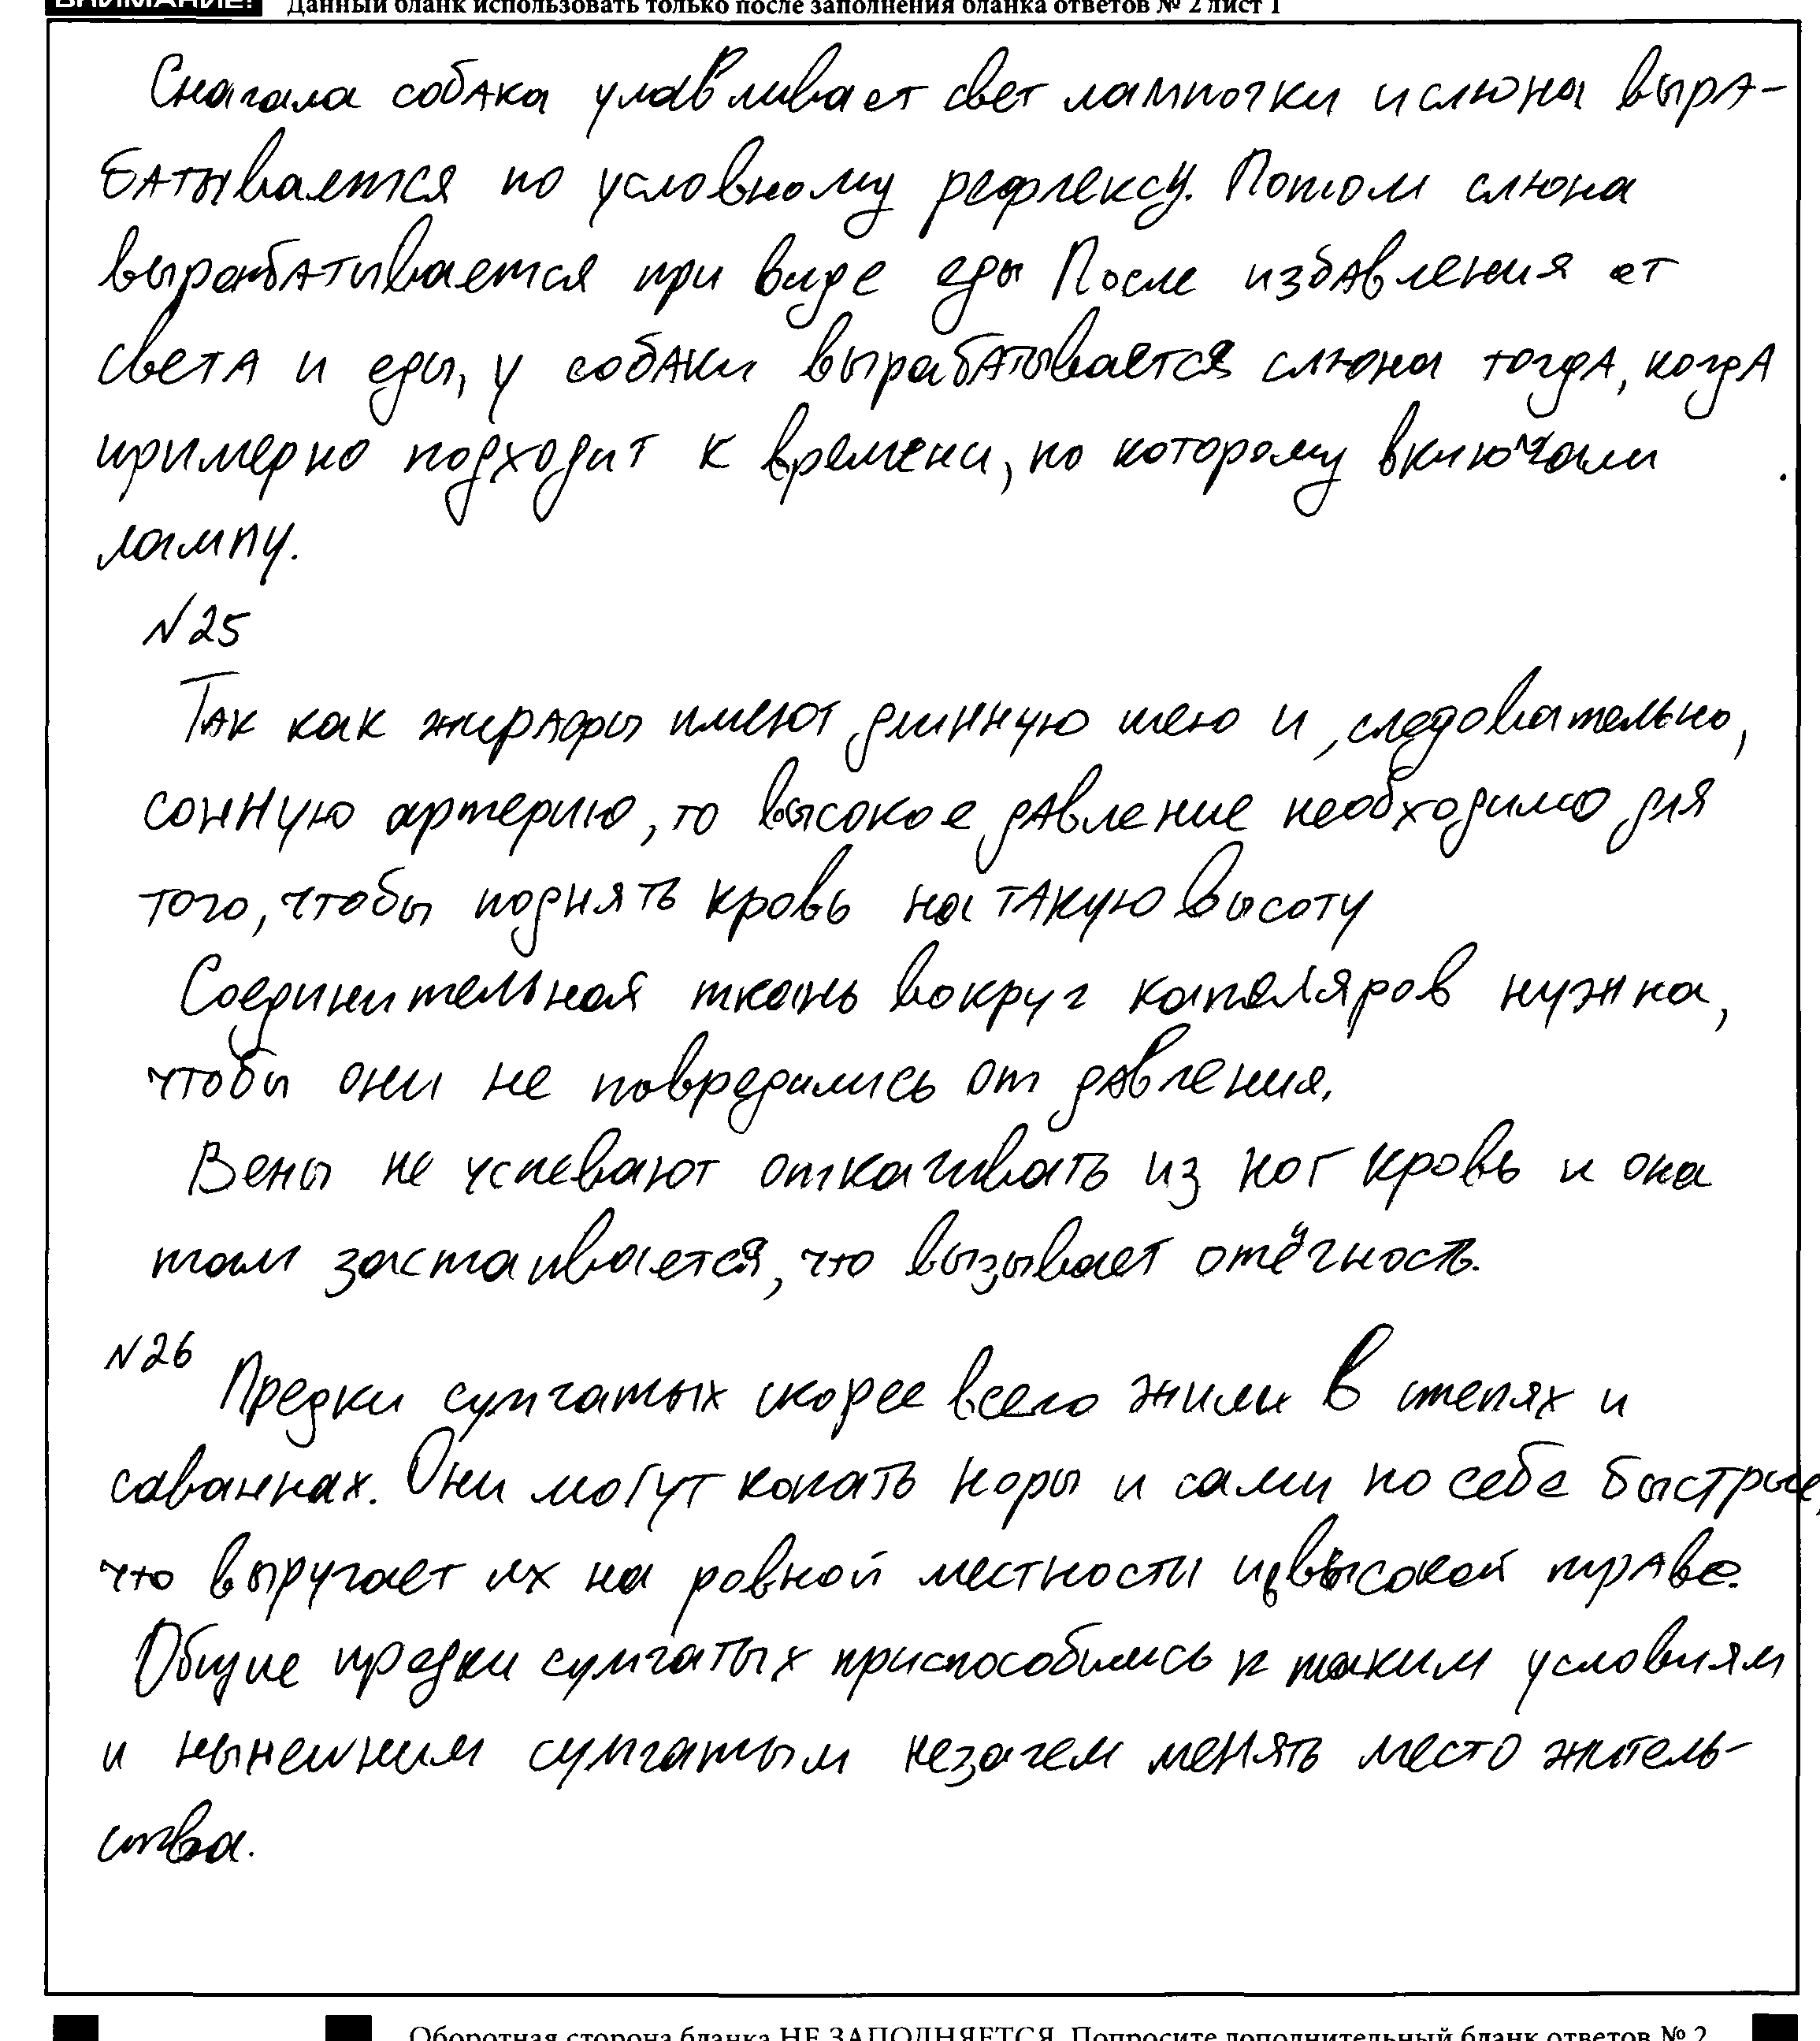 ВНИМАНИЕ! Данный бланк использовать только после заполнения бланка ответов № 2 лист 1
Сначала собака улавливает свет лампочки и слюна выра-
батывается по условному рефлексу. Потом слюна
вырабатывается при виде еды После избавления от
света и еды, у собаки вырабатывается слюна тогда, когда
примерно подходит к времени, по которому включали
лампу.
№25
Так как жирафы имеют длинную шею и, следовательно,
сонную артерию, то высокое давление необходимо для
того, чтобы поднять кровь на такую высоту
Соединительная ткань вокруг капеляров нужна,
чтобы они не повредились от давления.
Вены не успевают откачивать из ног кровь и она
там застаивается, что вызывает отёчность.
№26 Предки сумчатых скорее всего жили в степях и
саваннах. Они могут копать норы и сами по себе быстрые,
что выручает их на ровной местности и в высокой траве.
Общие предки сумчатых приспособились к таким условиям
и нынешним сумчатым незачем менять место житель-
ства.
Оборотная сторона бланка НЕ ЗАПОЛНЯЕТСЯ. Попросите дополнительный бланк ответов № 2